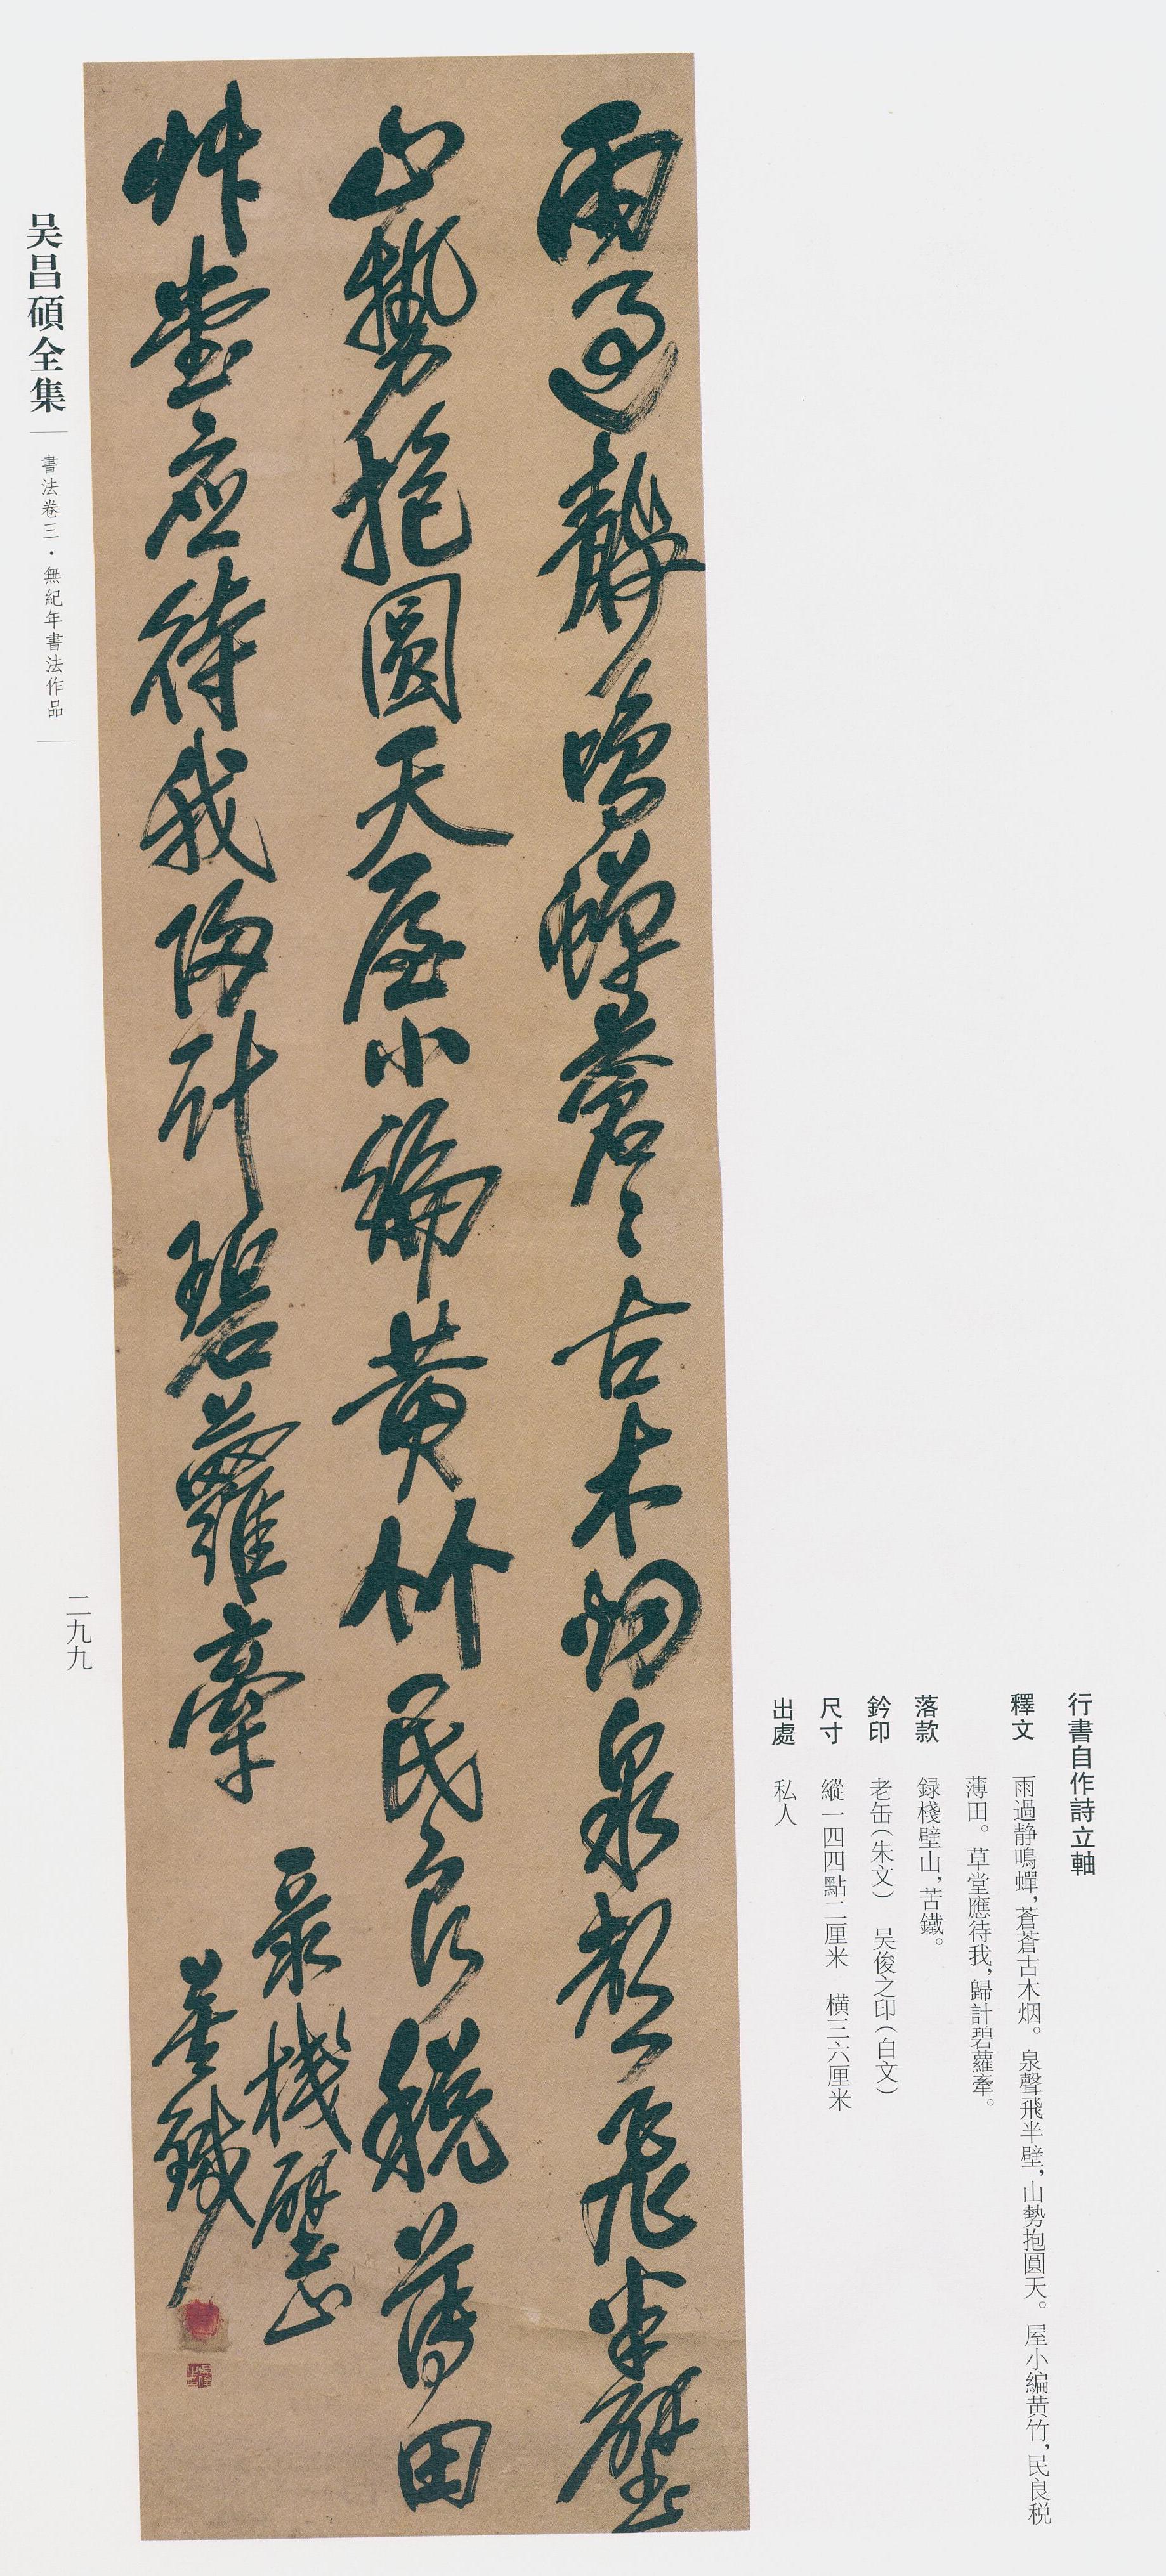 行書自作詩立軸
釋文 雨過静鳴蟬，蒼蒼古木烟。泉聲飛半壁，山勢抱圓天。屋小編黄竹，民良税
薄田。草堂應待我，歸計碧蘿牽。
落款 録棧壁山，苦鐵。
鈐印 老缶（朱文） 吴俊之印（白文）
尺寸 縱一四四點二厘米 横三六厘米
出處 私人
雨過静鳴蟬蒼〻古木烟泉聲飛半壁
山勢抱圓天屋小編黄竹民良税薄田
艸堂應待我歸計碧蘿牽
录棧壁山
苦鐵
吴昌碩全集
書法卷三·無紀年書法作品
二九九